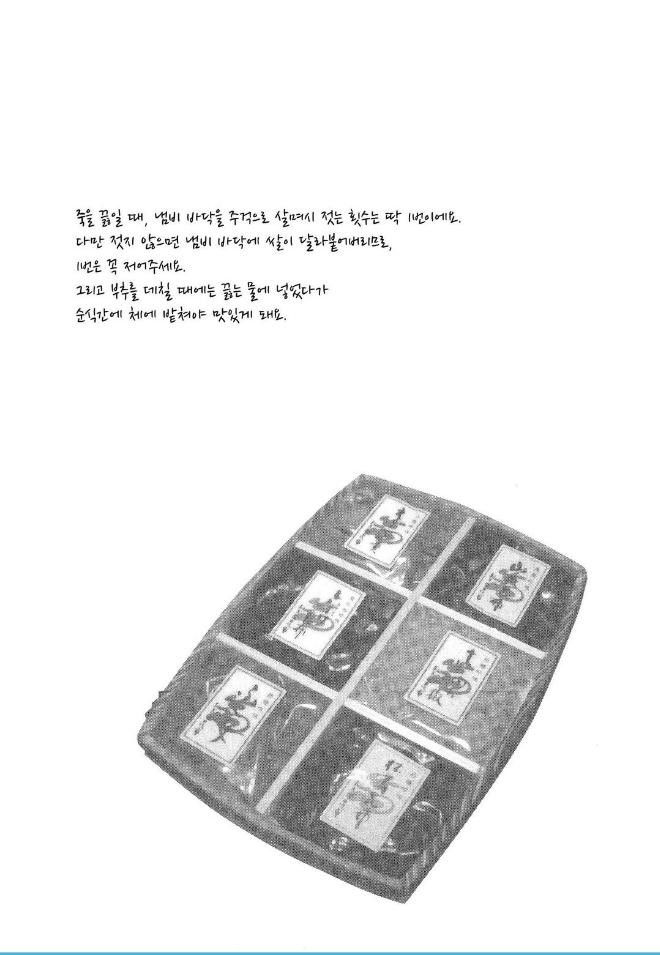 죽을 끓일 때, 냄비 바닥을 주걱으로 살며시 젓는 횟수는 딱 1번이에요.
다만 젓지 않으면 냄비 바닥에 쌀이 달라붙어버리므로,
1번은 꼭 저어주세요.
그리고 부추를 데칠 때에는 끓는 물에 넣었다가
순식간에 체에 밭쳐야 맛있게 돼요.